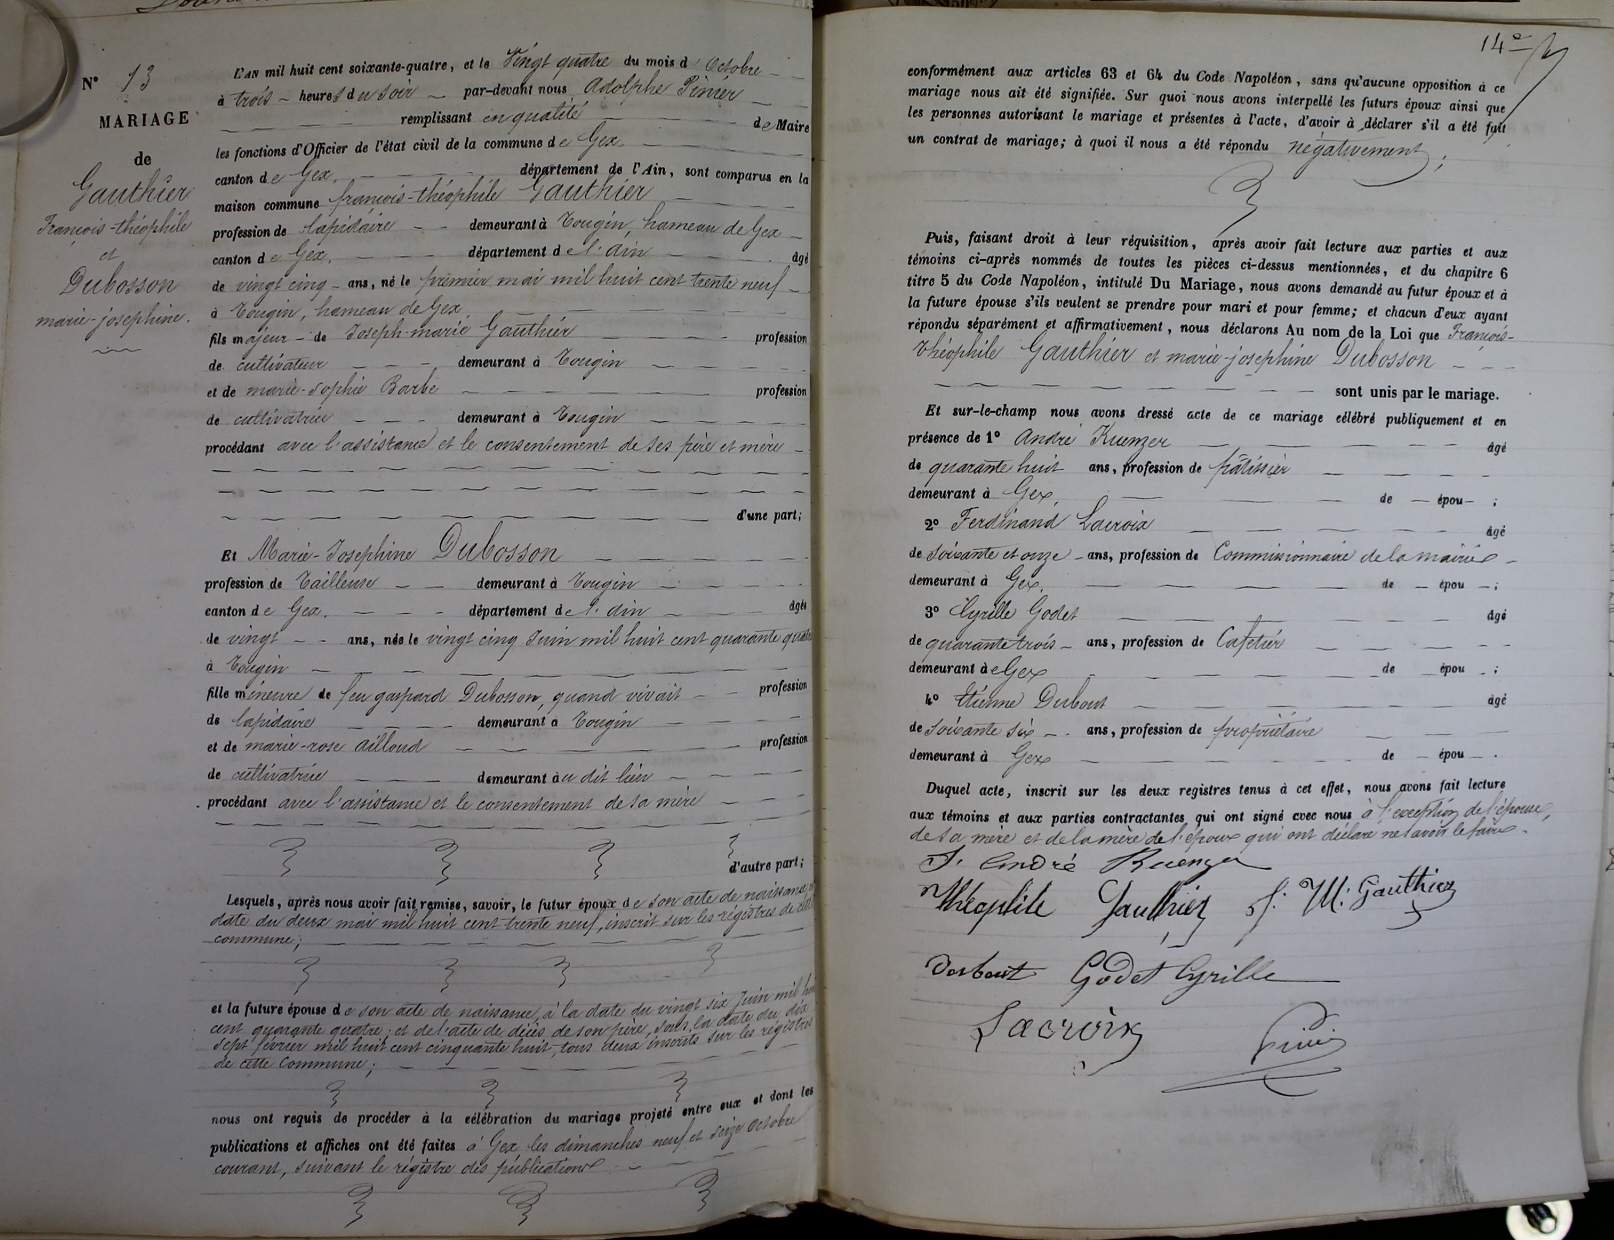 N° 13
MARIAGE
de
Gauthier
François-théophile
et
Dubosson
marie-josephine.
L'AN mil huit cent soixante-quatre, et le Vingt quatre du mois d'Octobre
à trois heures du soir par-devant nous Adolphe Pinier
remplissant en qualité de Maire
les fonctions d'Officier de l'état civil de la commune de Gex
canton de Gex. département de l'Ain, sont comparus en la
maison commune françois-théophile Gauthier
profession de lapidaire demeurant à Tougin, hameau de Gex
canton de Gex. département de l'ain âgé
de vingt cinq ans, né le premier mai mil huit cent trente neuf
à Tougin, hameau de Gex
fils majeur de Joseph-marie Gauthier profession
de cultivateur demeurant à Tougin
et de marie-sophie Barbe profession
de cultivatrice demeurant à Tougin
procédant avec l'assistance et le consentement de ses père et mère
d'une part;
Et Marie-Josephine Dubosson
profession de Tailleuse demeurant à Tougin
canton de Gex. département de l'ain âgée
de vingt ans, née le vingt cinq Juin mil huit cent quarante quatre
à Tougin
fille mineure de feu gaspard Dubosson, quand vivait profession
de lapidaire demeurant à Tougin
et de marie-rose ailloud profession
de cultivatrice demeurant au dit lieu
procédant avec l'assistance et le consentement de sa mère
d'autre part;
Lesquels, après nous avoir fait remise, savoir, le futur époux de son acte de naissance,
date du deux mai mil huit cent trente neuf, inscrit sur les régistres de
commune;
et la future épouse de son acte de naissance, à la date du vingt six Juin mil huit
cent quarante quatre; et de l'acte de décès de son père, sous la date du dix
sept février mil huit cent cinquante huit, tous deux inscrits sur les régistres
de cette Commune;
nous ont requis de procéder à la célébration du mariage projeté entre eux et dont les
publications et affiches ont été faites à Gex, les dimanches neuf et seize Octobre
courant, suivant le régistre des publications
14e
conformément aux articles 63 et 64 du Code Napoléon, sans qu'aucune opposition à ce
mariage nous ait été signifiée. Sur quoi nous avons interpellé les futurs époux ainsi que
les personnes autorisant le mariage et présentes à l'acte, d'avoir à déclarer s'il a été fait
un contrat de mariage; à quoi il nous a été répondu négativement;
Puis, faisant droit à leur réquisition, après avoir fait lecture aux parties et aux
témoins ci-après nommés de toutes les pièces ci-dessus mentionnées, et du chapitre 6
titre 5 du Code Napoléon, intitulé Du Mariage, nous avons demandé au futur époux et à
la future épouse s'ils veulent se prendre pour mari et pour femme; et chacun d'eux ayant
répondu séparément et affirmativement, nous déclarons Au nom de la Loi que François-
théophile Gauthier et marie-josephine Dubosson
sont unis par le mariage.
Et sur-le-champ nous avons dressé acte de ce mariage célébré publiquement et en
présence de 1° André Kuenzer âgé
de quarante huit ans, profession de pâtissier
demeurant à Gex. de épou ;
2° Ferdinand Lacroix âgé
de soixante et onze ans, profession de Commissionnaire de la mairie
demeurant à Gex. de épou ;
3° Cyrille Godet âgé
de quarante trois ans, profession de Cafetier
demeurant à Gex de épou ;
4° Etienne Dubout âgé
de soixante six ans, profession de propriétaire
demeurant à Gex de épou
Duquel acte, inscrit sur les deux registres tenus à cet effet, nous avons fait lecture
aux témoins et aux parties contractantes qui ont signé avec nous à l'exception de l'épouse,
de sa mère et de la mère de l'époux qui ont déclaré ne savoir le faire.
André Kuenzer
Théophile Gauthier J. M. Gauthier
Godet Cyrille
Lacroix